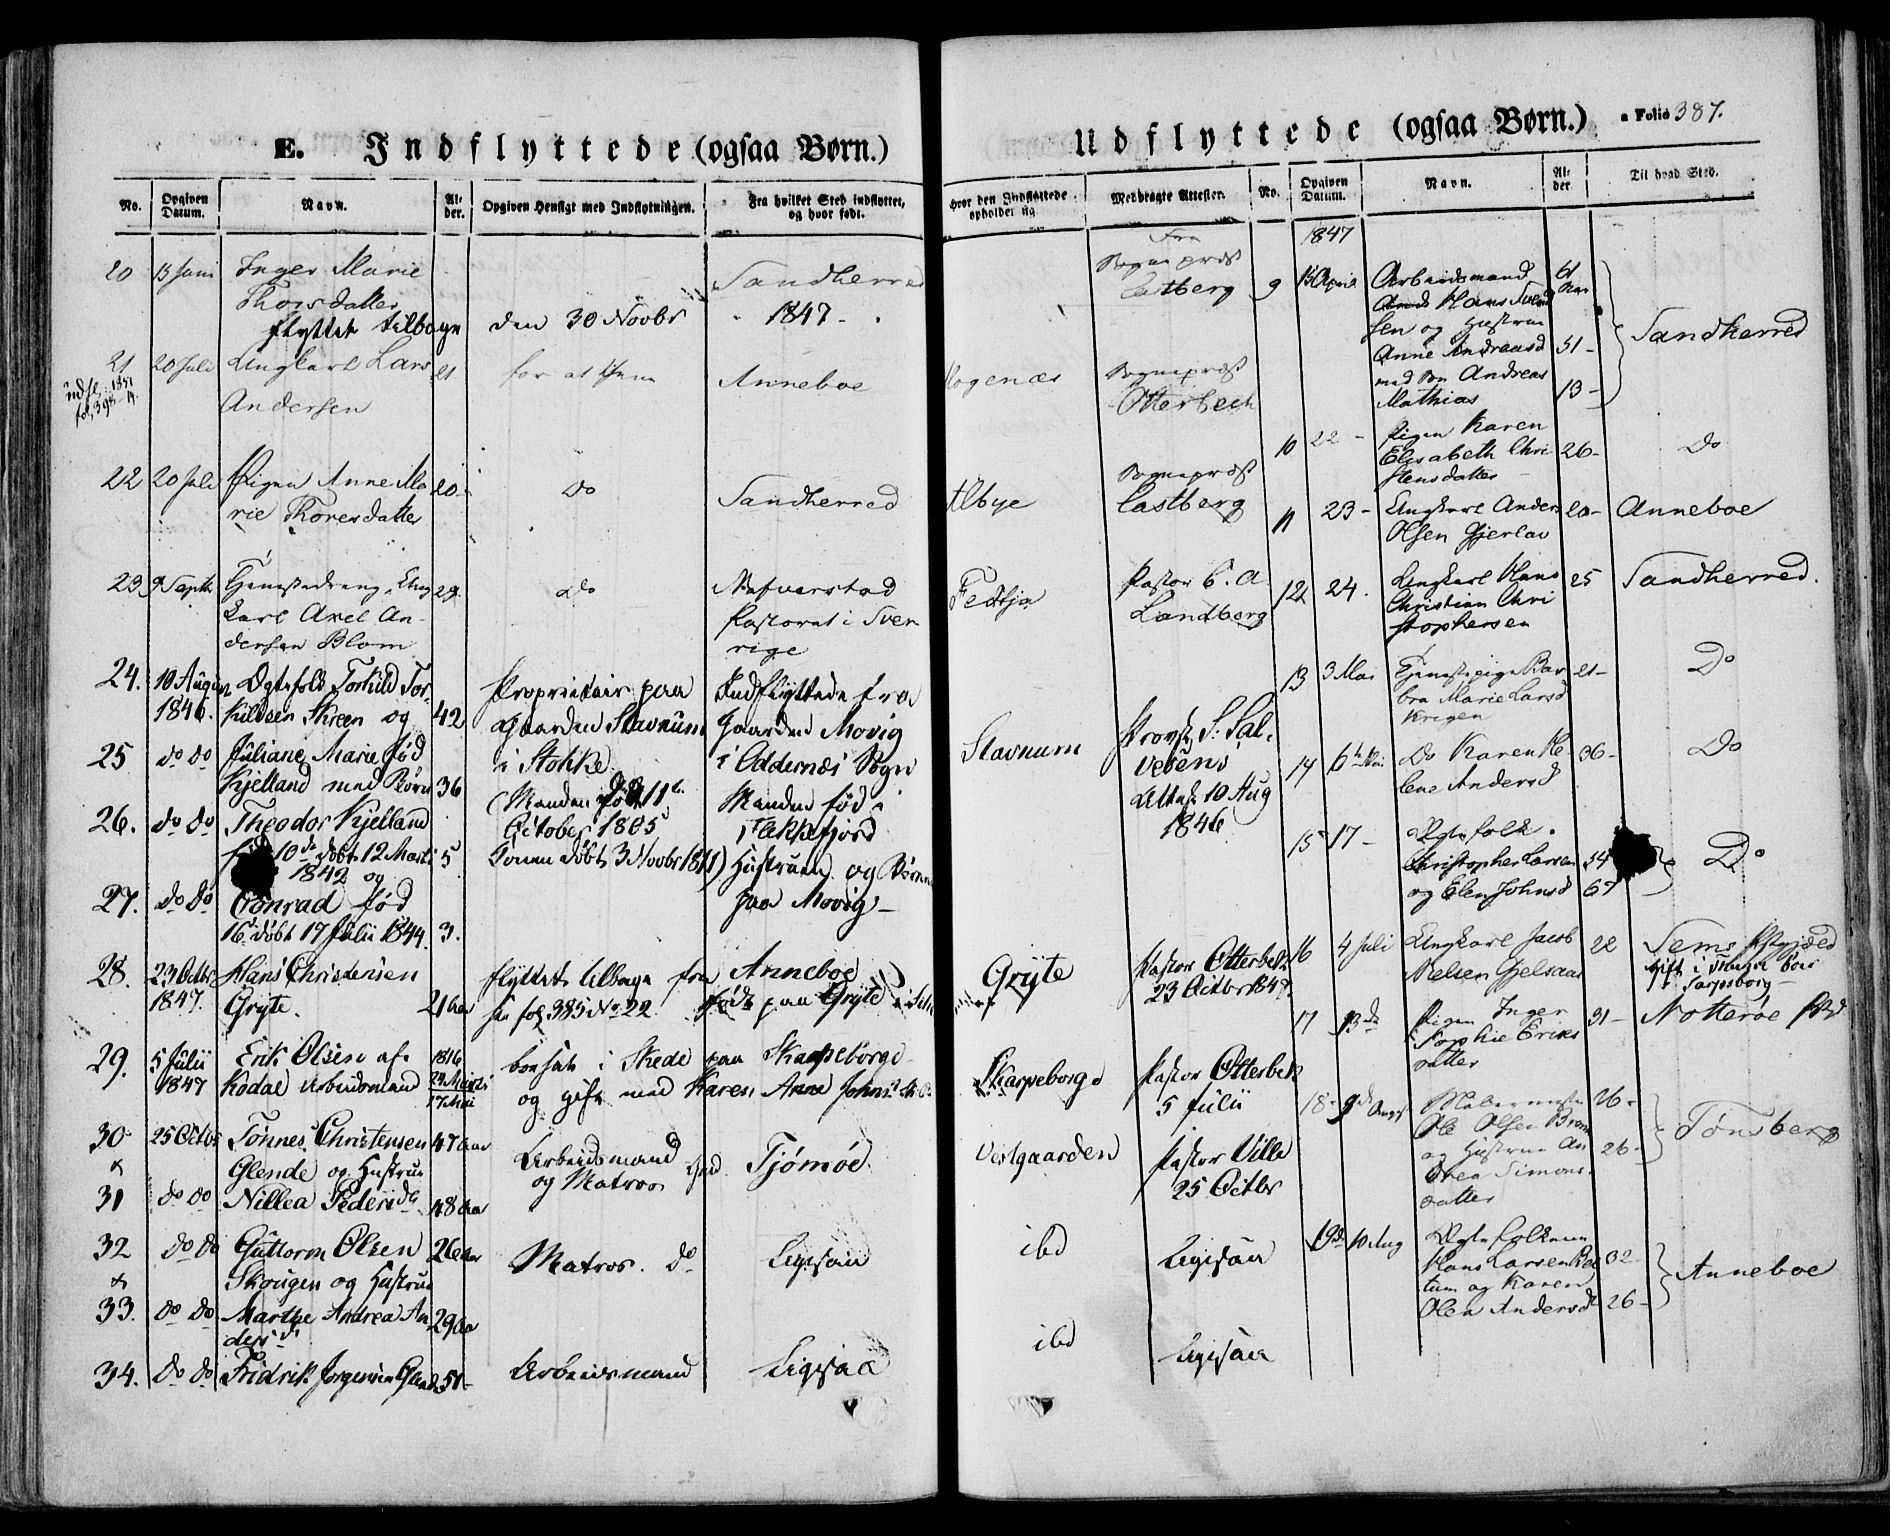 E. Indflyttede (ogsaa Børn.)
No. Opgiven Datum. Navn. Alder. Opgiven Hensigt med Indflytningen. Fra hvilket Sted indflyttet, og hvor født.
20 13 Juni Inger Marie Sandherred
Thorsdatter
flyttet tilbage den 30 Novbr 1847
21 20 Juli Ungkarl Lars 21 for at tjene Anneboe
Andersen
22 20 Juli Pigen Anne Ma 20 Do Sandherred
rie Thoresdatter
23 9 Septb Tjenestedreng, Ung 29 Do Nafverstad
karl Axel An- Pastorat i Sver
dersen Blom rige
24. 10 August Ægtefolk Torkild Tor- Proprietair paa Indflyttede fra
1846. kildsen Skreen og 42 Gaarden Stavnum Gaarden Movig
25 do do Juliane Marie fød i Stokke. i Oddernes Sogn
Kjelland med Børn 36 (Manden fød 11te Manden fød i
26. do do Theodor Kjelland October 1805 Flekkefjord
10de døbt 12 Marti 5 Konen døbt 3 Novbr 1811) Hustruen og Børnene
1842 og
27. do do Conrad fød paa Movig
16 døbt 17 Julii 1844. 3.
28. 23 Octbr Hans Christensen flyttet tilbage fra Anneboe
1847. Gryte. 21 Aar see fol 385 No 22 født paa Gryte
29. 5 Julii Erik Olsen af 1816 bonsat i Skede paa Skarpeborge
1847 Kodal Arbeidsmand 24 Marti og gift med Karen Anne Johns
17 Mai
30 25 Octbr Tønnes Christensen 47 Aar Arbeidsmand Tjømøe.
x Glende og Hustrue og Matros
31 do do Nillea Peders 48 Aar
32 do do Guttorm Olsen 26 Aar Matros. do Ligesaa
x Skougen og Hustrue
33. do do Marthe Andrea An 29 Aar
ders d
34. do do Fridrik Jørgensen 51 Arbeidsmand Ligesaa
Udflyttede (ogsaa Børn.) Folio 387.
Hvor den Indflyttede opholder sig Medbragte Attester. No. Opgiven Datum. Navn. Alder Til hvad Sted.
Fra 1847
Sogneprest
Castberg 9 15 April Arbeidsmand 61
Hans Svend Aar
sen og Hustrue Sandherred
Anne Andreasd 51-
Rogenæs Sogneprest med Søn Andreas
Otterbech Mathias 13-
10 22 - Pigen Karen
Elisabeth Chri 26- Do
Sogneprest stensdatter
Ilbye Castberg 11 23- Ungkarl Anders 20- Anneboe
Olsen Gjerlau
Pastor C. A. 12 24. Ungkarl Hans 25 Sandherred.
Landberg Christian Chri
stophersen
13 3 Mai Tjenestepige Bar 21- Do
bra Marie Larsd
Stavnum Provst S. Sal.
vesens 14 6te Mai Do Karen He- 36- Do
Attest 10 Aug lene Andersd
1846
15 17- Ægtefolk
Christopher Larsen 54 Do
og Elen Johnsd 67
Gryte Pastor Otterbek 16 4 Juli Ungkarl Jacob 22 Sems
23 Octbr 1847. Nielsen
Sarpsborg
17 13de Pigen Inger 31- Notterøe
Sophie Eriks
datter
Skarpeborge Pastor Otterbek
5 Julii 18- 9de August 26-
Ole Olsen Tønsberg
Vestgaarden Pastor Ville og Hustrue An 26-
25 Octbr drea Simons-
datter
ibd Ligesaa 19de 10 Aug Ægtefolkene
Hans Larsen 32- Anneboe
og Karen
Olea Andersdt 26-
ibd Ligesaa